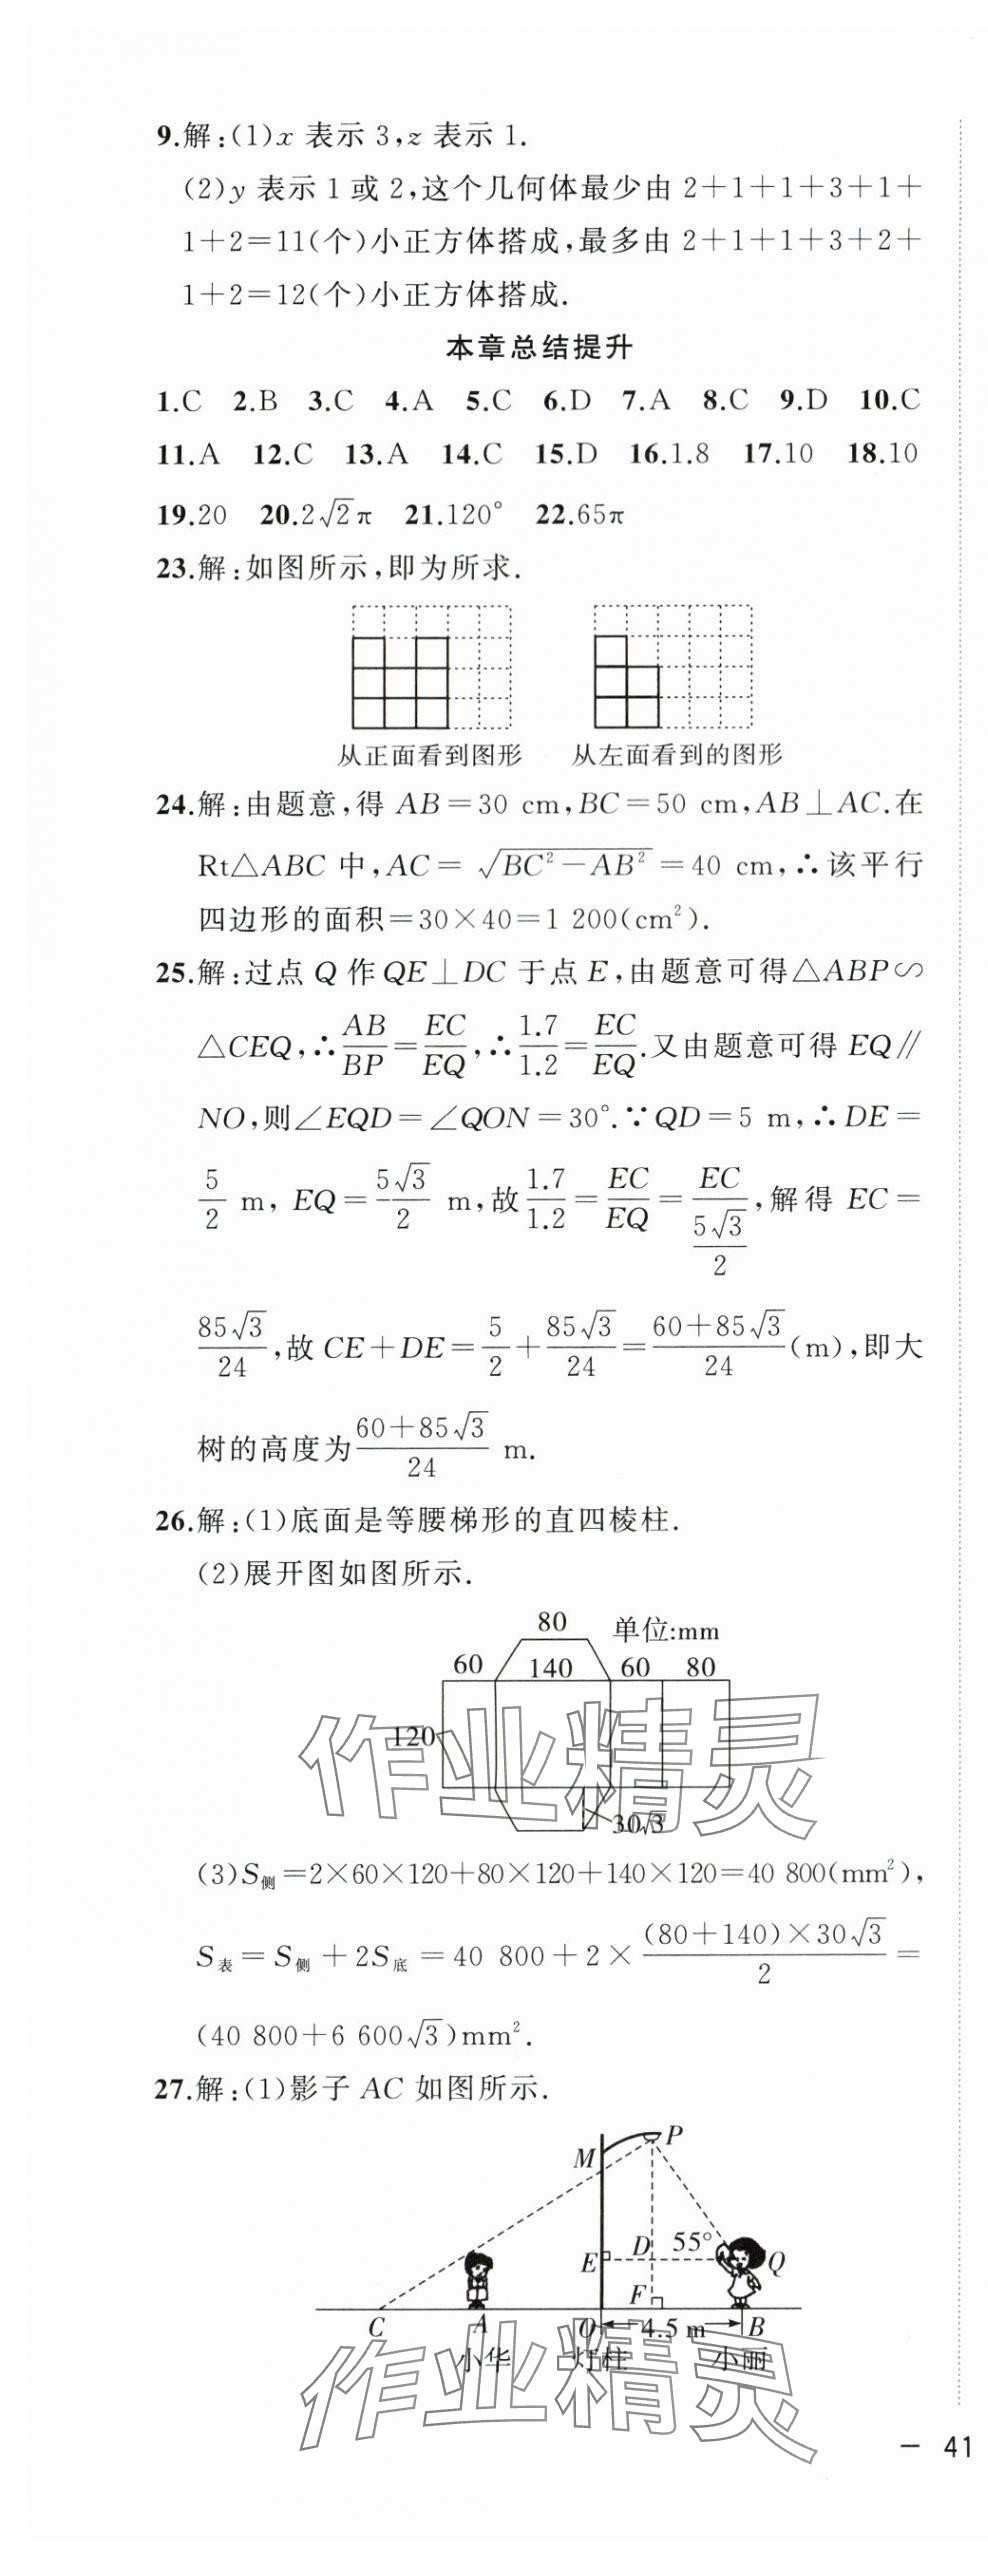 9.解:(1)x 表示 3,z 表示 1.
(2)y 表示 1 或 2,这个几何体最少由 2+1+1+3+1+
1+2=11(个)小正方体搭成,最多由 2+1+1+3+2+
1+2=12(个)小正方体搭成.
本章总结提升
1.C 2.B 3.C 4.A 5.C 6.D 7.A 8.C 9.D 10.C
11.A 12.C 13.A 14.C 15.D 16.1.8 17.10 18.10
19.20 20.2√2π 21.120° 22.65π
23.解:如图所示,即为所求.
从正面看到图形 从左面看到的图形
24.解:由题意,得 AB=30 cm,BC=50 cm,AB⊥AC.在
Rt△ABC 中,AC=√(BC²-AB²)=40 cm,∴该平行
四边形的面积=30×40=1 200(cm²).
25.解:过点 Q 作 QE⊥DC 于点 E,由题意可得△ABP∽
△CEQ,∴AB/BP=EC/EQ,∴1.7/1.2=EC/EQ.又由题意可得 EQ∥
NO,则∠EQD=∠QON=30°.∵QD=5 m,∴DE=
5/2 m, EQ=5√3/2 m,故1.7/1.2=EC/EQ=EC/(5√3/2),解得 EC=
85√3/24,故 CE+DE=5/2+85√3/24=(60+85√3)/24(m),即大
树的高度为(60+85√3)/24 m.
26.解:(1)底面是等腰梯形的直四棱柱.
(2)展开图如图所示.
80 单位:mm
60 140 60 80
120
30√3
作业精灵
(3)S侧=2×60×120+80×120+140×120=40 800(mm²),
S表=S侧+2S底=40 800+2×(80+140)×30√3/2=
(40 800+6 600√3)mm².
27.解:(1)影子 AC 如图所示.
M P
E D 55° Q
F
C A O 4.5 m B
小华 灯柱 小丽
作业精灵
— 41